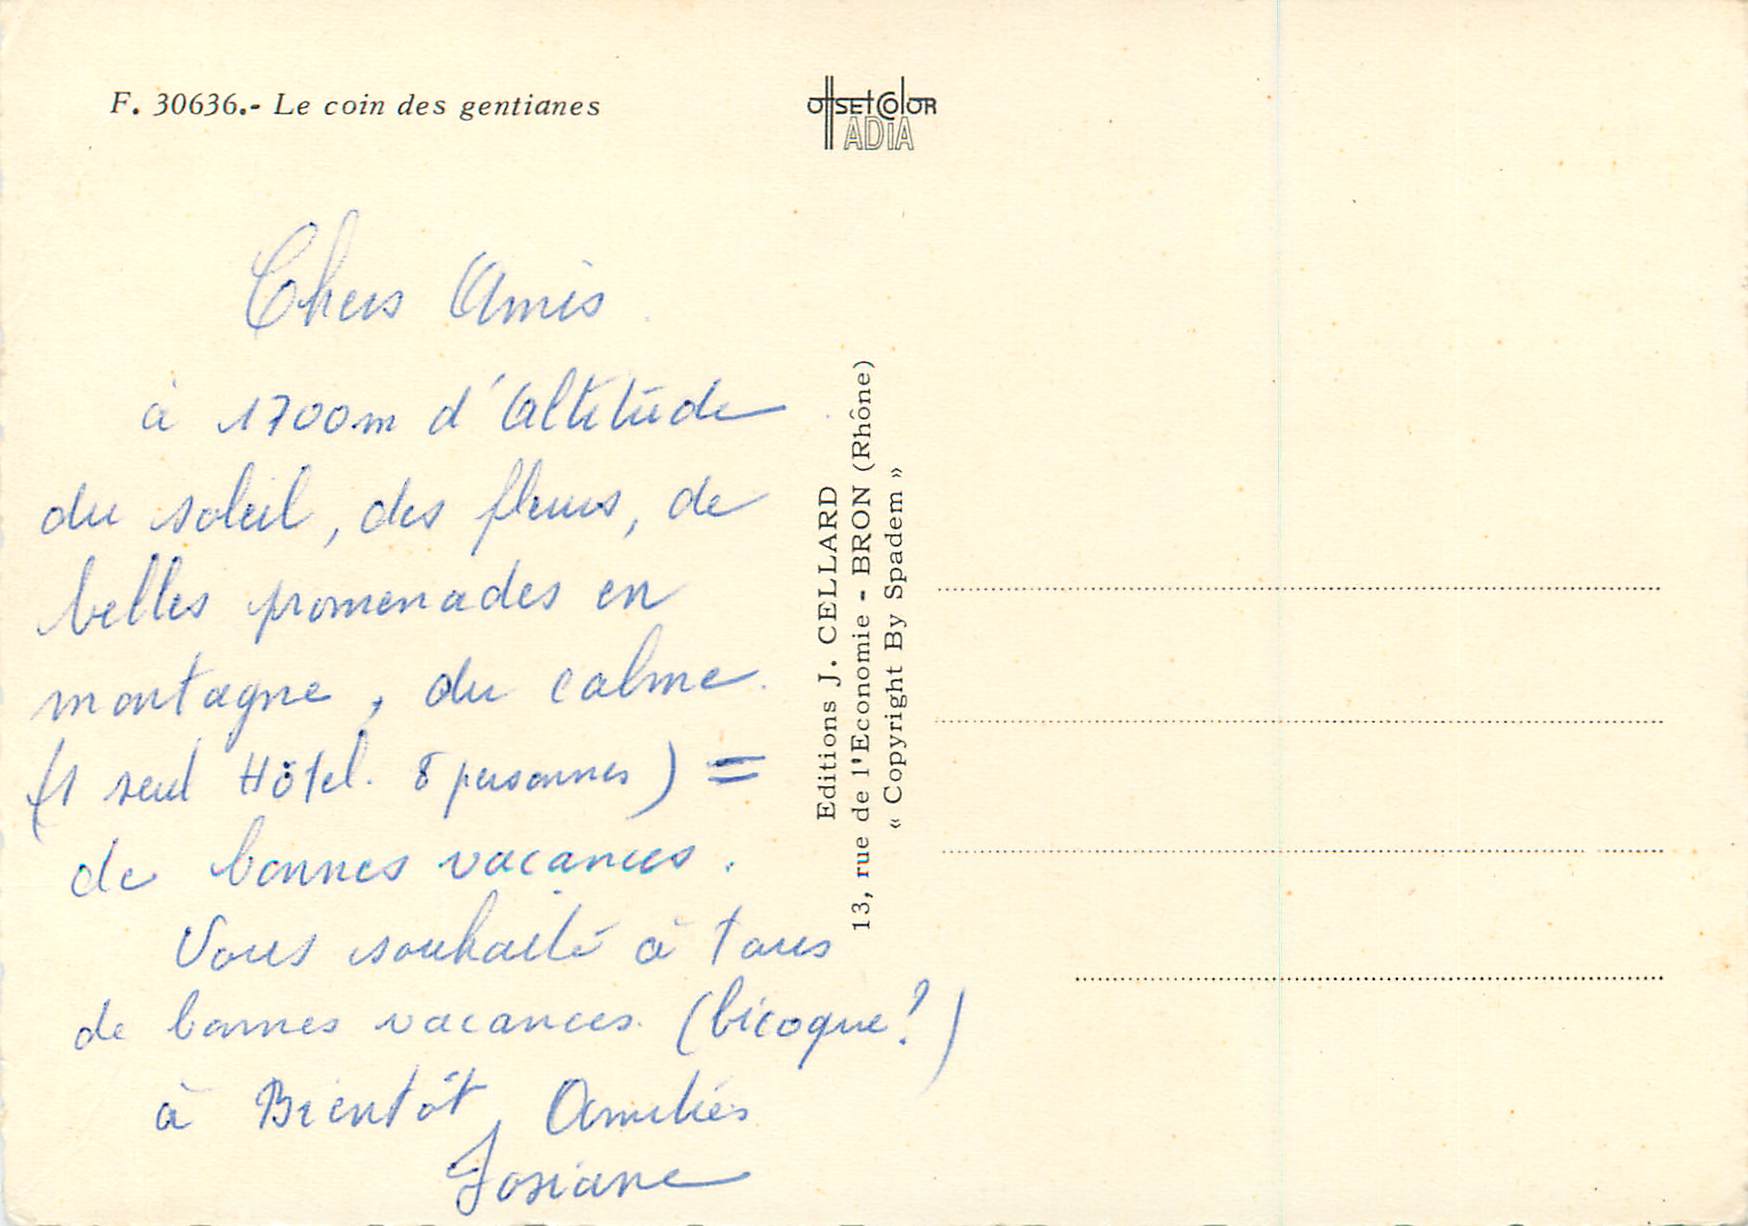 F. 30636.- Le coin des gentianes
OffSEtColoR
ADiA
Chers Amis
à 1700m d'Altitude
du soleil, des fleurs, de
belles promenades en
montagne, du calme.
(1 seul Hôtel. 8 personnes) =
de bonnes vacances.
Vous souhaite à tous
de bonnes vacances. (bicoque?)
à Bientôt, Amitiés
Josiane
Editions J. CELLARD
13, rue de l'Economie - BRON (Rhône)
« Copyright By Spadem »